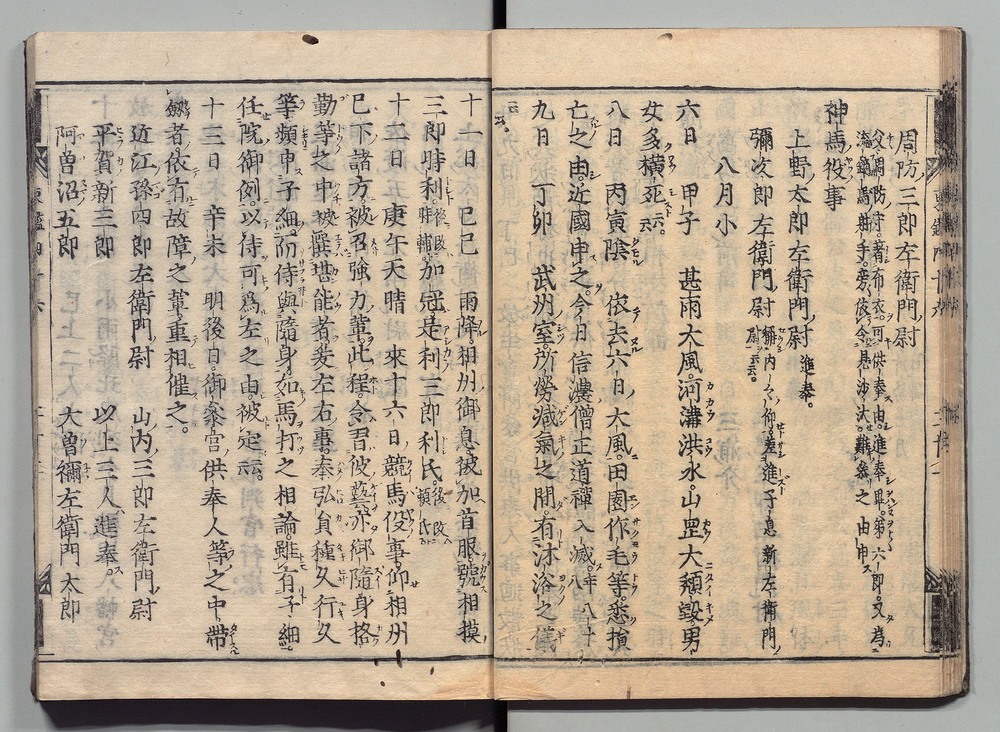 周防三郎左衛門尉
父周防守。著布衣。可供奉由。進奉畢。第六郎。又為
流鏑馬射手。旁依令愚沙汰。難参之由申
神馬役事
上野太郎左衛門尉 進奉。
彌次郎左衛門尉
八月小
六日 甲子 甚雨大風。河溝洪水。山岳大頽毀。男
女多横死云云。
八日 丙寅陰 依去六日大風。田園作毛等。悉損
亡之由。近國申之。今日信濃僧正道禪入滅。年八十
九日 丁卯 武州室。所勞減氣之間。有沐浴之儀
云云。
十一日 己巳 雨降。相州御息被加首服。號相摸
三郎時利。後改時輔加冠足利三郎利氏。後改頼氏
十二日 庚午天晴 來十六日競馬役事。仰相州
已下諸方。被召強力輩。此程。令習彼藝。亦御隨身格
勤等之中。被撰堪能者。發左右事。奉弘員種久行久
等。頻申子細。而侍與隨身。如馬打之相論。雖有子細
任院御例。以侍可為左之由。被定云云。
十三日 辛未 明後日。御參宮。供奉人等之中。帶
劔者。依有故障之輩。重相催之。
近江孫四郎左衛門尉 山内三郎左衛門尉
平賀新三郎 以上三人進奉。
阿曽沼五郎 大曽禰左衛門太郎